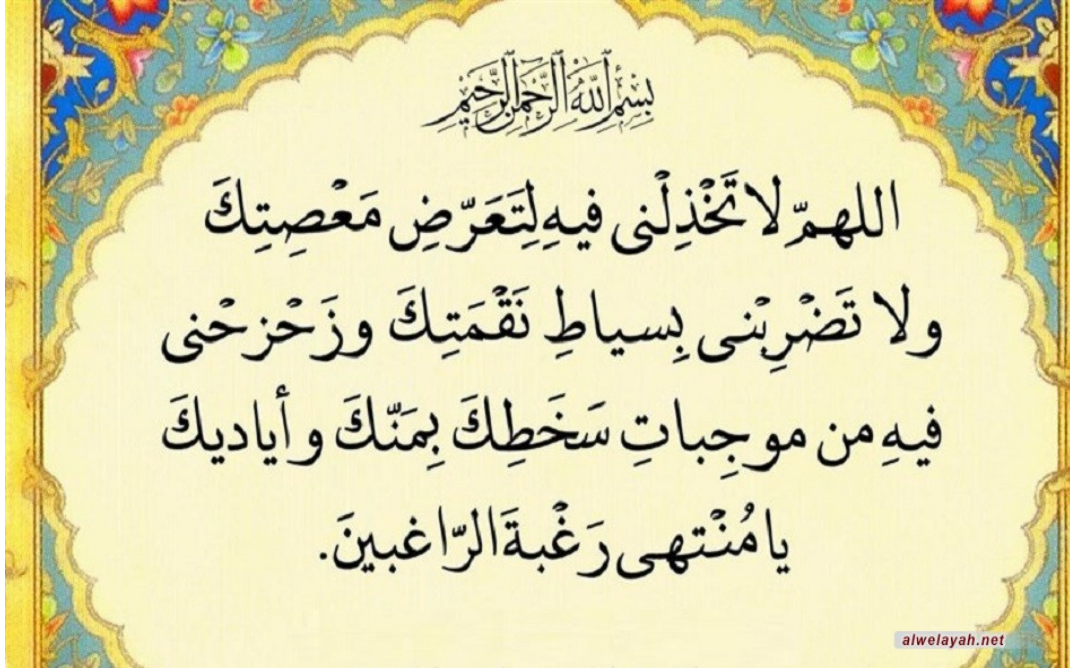 بِسْمِ اللَّهِ الرَّحْمَنِ الرَّحِيمِ
اللهمّ لا تَخْذِلْنى فيهِ لِتَعَرّضِ مَعْصِيَتِكَ
ولا تَضْرِبْنى بِسياطِ نَقْمَتِكَ وزَحْزحْنى
فيهِ من موجِباتِ سَخَطِكَ بِمَنّكَ وأياديكَ
يا مُنْتهى رَغْبةَ الرّاغبينَ.
alwelayah.net